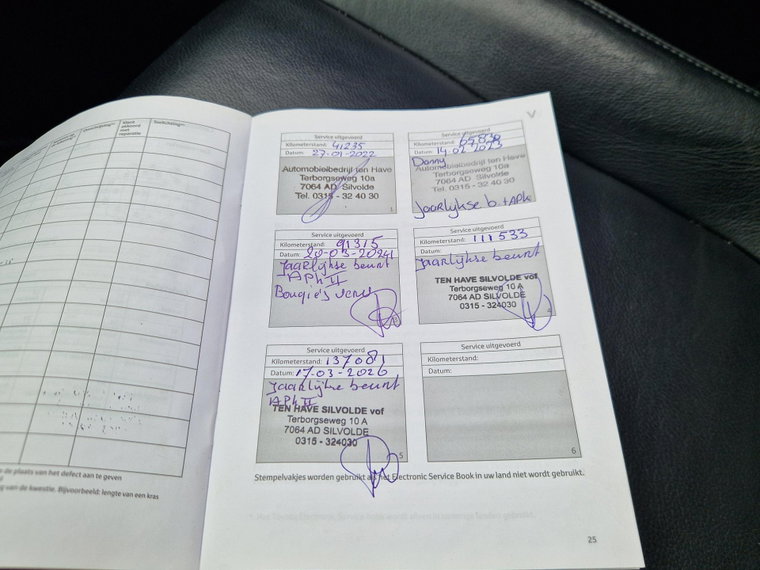 Klant akkoord met reparatie
Toelichting
Service uitgevoerd
Kilometerstand: 41235
Datum: 27-01-2022
Automobielbedrijf ten Have
Terborgseweg 10a
7064 AD Silvolde
Tel. 0315 - 32 40 30
1
Service uitgevoerd
Kilometerstand: 65830
Datum: 14 02 2023
Danny
Automobielbedrijf ten Have
Terborgseweg 10a
7064 AD Silvolde
Tel. 0315 - 32 40 30
Jaarlijkse b. + APK
Service uitgevoerd
Kilometerstand: 91315
Datum: 20-03-2024
Jaarlijkse beurt
APK
Bougie's
Service uitgevoerd
Kilometerstand: 111533
Datum:
Jaarlijkse beurt
TEN HAVE SILVOLDE vof
Terborgseweg 10 A
7064 AD SILVOLDE
0315 - 324030
4
Service uitgevoerd
Kilometerstand: 137081
Datum: 17-03-2026
Jaarlijkse beurt
APK
TEN HAVE SILVOLDE vof
Terborgseweg 10 A
7064 AD SILVOLDE
0315 - 324030
5
Service uitgevoerd
Kilometerstand:
Datum:
6
Stempelvakjes worden gebruikt als het Electronic Service Book in uw land niet wordt gebruikt.
de plaats van het defect aan te geven
van de kwestie. Bijvoorbeeld: lengte van een kras
25